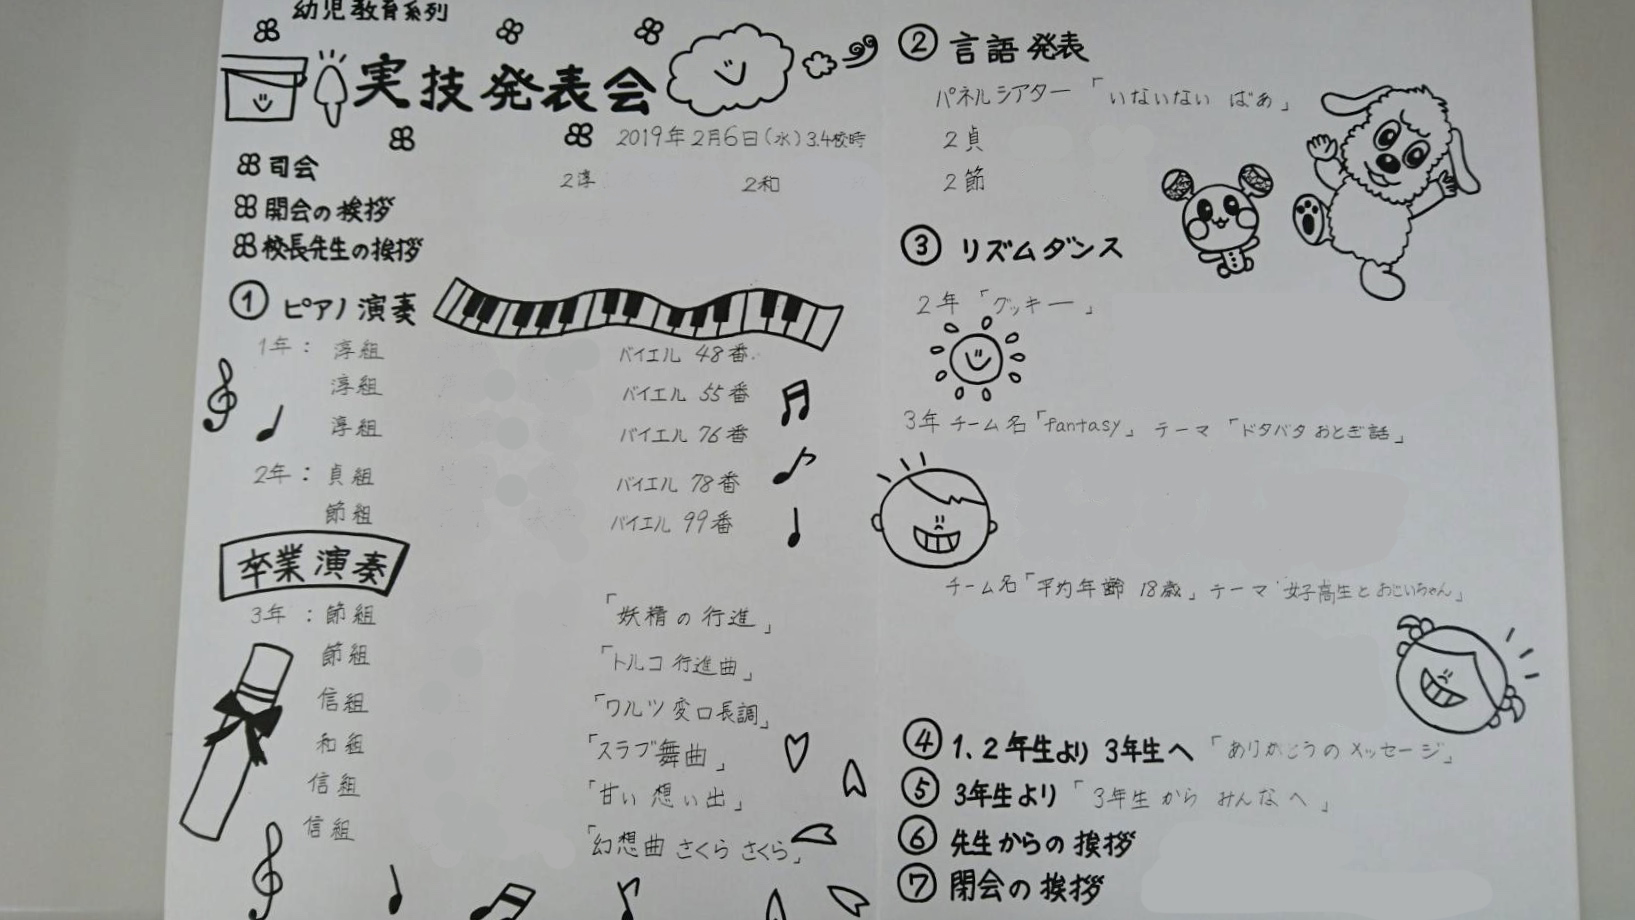 幼児教育系列
実技発表会
2019年2月6日(水)3.4校時
司会 2淳 2和
開会の挨拶
校長先生の挨拶
① ピアノ演奏
1年: 淳組 バイエル 48番
淳組 バイエル 55番
淳組 バイエル 76番
2年: 貞組 バイエル 78番
節組 バイエル 99番
卒業演奏
3年: 節組 「妖精の行進」
節組 「トルコ行進曲」
信組 「ワルツ変ロ長調」
和組 「スラブ舞曲」
信組 「甘い想い出」
信組 「幻想曲 さくら さくら」
② 言語発表
パネルシアター 「いないない ばぁ」
2貞
2節
③ リズムダンス
2年 「グッキー」
3年 チーム名「fantasy」 テーマ 「ドタバタおとぎ話」
チーム名「平均年齢 18歳」 テーマ「女子高生とおじいちゃん」
④ 1、2年生より 3年生へ 「ありがとうのメッセージ」
⑤ 3年生より 「3年生から みんなへ」
⑥ 先生からの挨拶
⑦ 閉会の挨拶